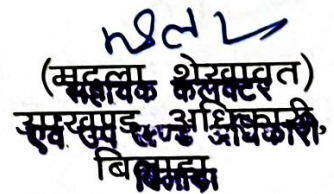 (मृदुला शेखावत)
सहायक कलक्टर
उपखण्ड अधिकारी,
एवं उप खण्ड अधिकारी,
बिलाड़ा
बिलाड़ा